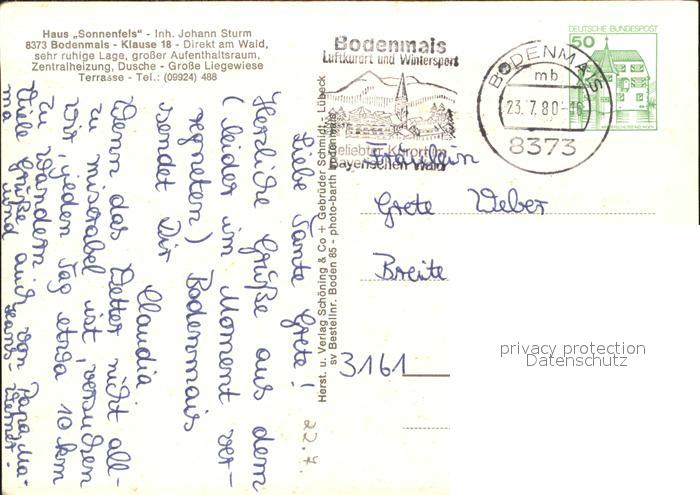 Haus „Sonnenfels" - Inh. Johann Sturm
8373 Bodenmais - Klause 18 - Direkt am Wald,
sehr ruhige Lage, großer Aufenthaltsraum,
Zentralheizung, Dusche - Große Liegewiese
Terrasse - Tel.: (09924) 488
Bodenmais
Luftkurort und Wintersport
beliebter Kurort im
Bayerischen Wald
BODENMAIS
mb
23.7.80-16
8373
DEUTSCHE BUNDESPOST
50
Fräulein
Grete Weber
Breite
3161
privacy protection
Datenschutz
Herst. u. Verlag Schöning & Co + Gebrüder Schmidt - Lübeck
sv Bestellnr. Boden 85 - photo-barth bodenmais
22.7.
Liebe Tante Grete!
Herzliche Grüße aus dem
(leider im Moment ver-
regneten) Bodenmais
sendet Dir
Claudia
Wenn das Wetter nicht all-
zu miserabel ist, versuchen
wir, jeden Tag etwa 10 km
zu wandern.
Viele Grüße auch von Papa, Ma-
ma und Hans-Werner.